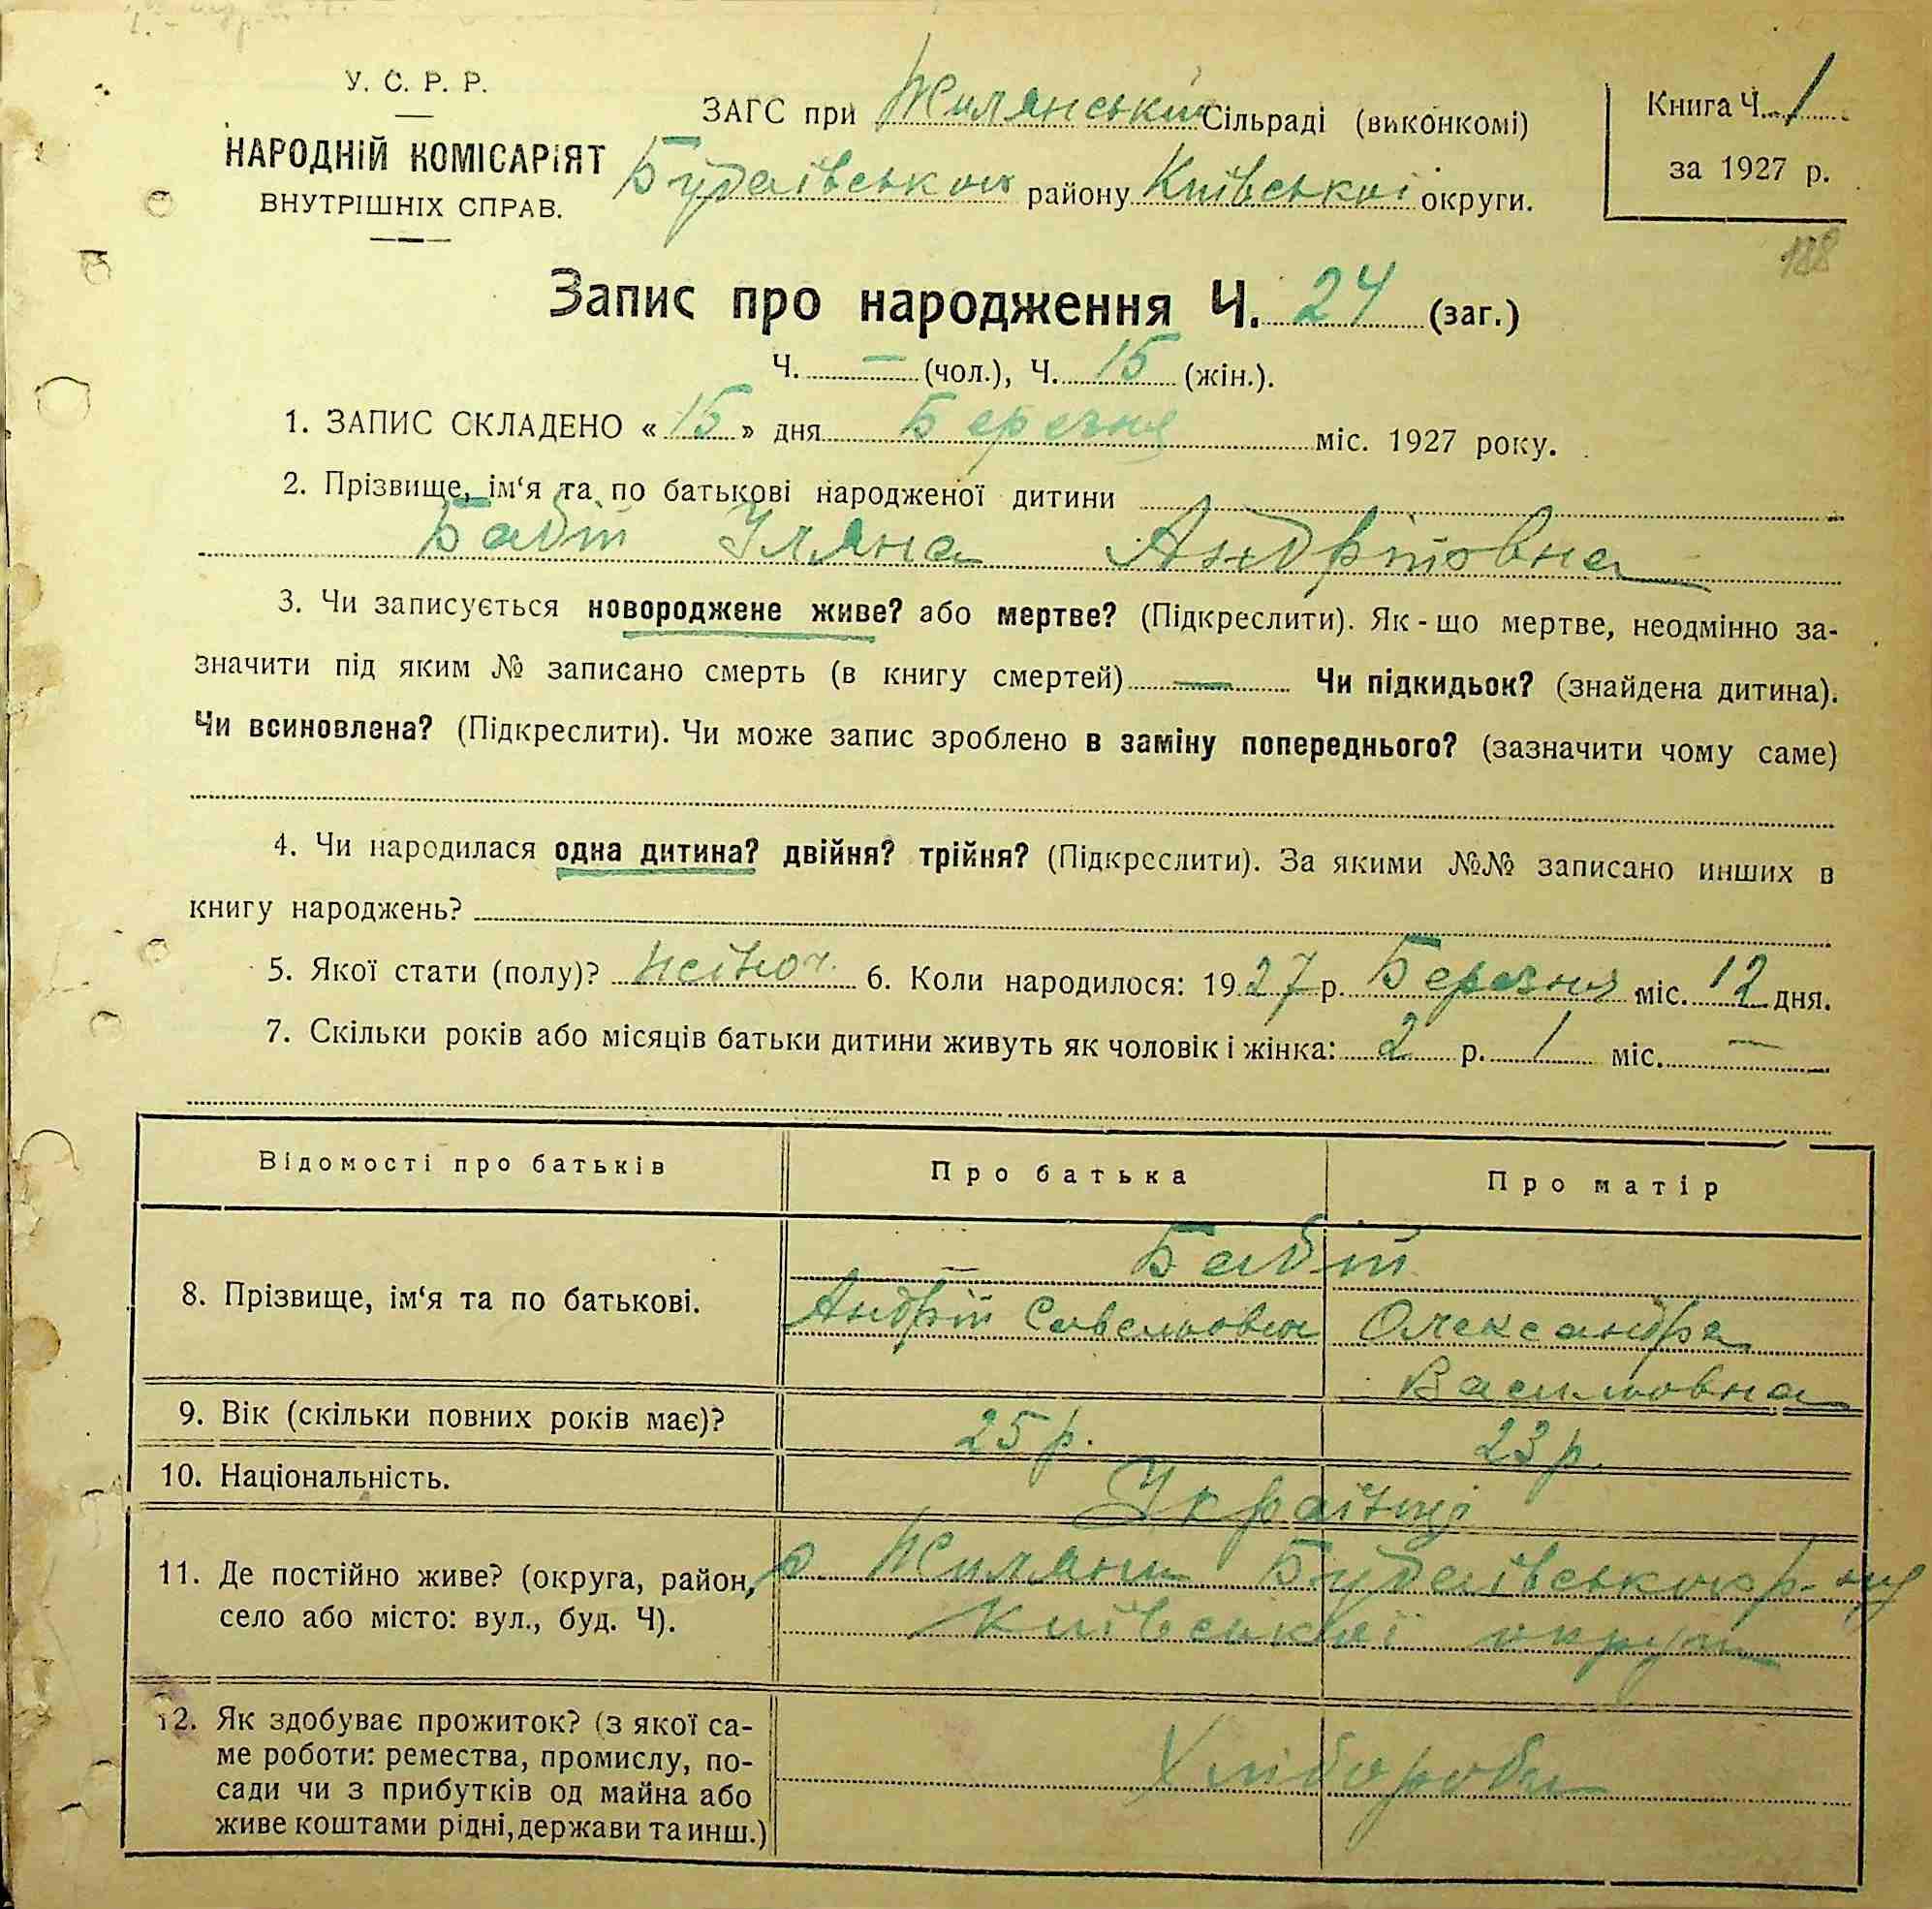 У. С. Р. Р.
НАРОДНІЙ КОМІСАРІЯТ
ВНУТРІШНІХ СПРАВ.
ЗАГС при Жилянській Сільраді (виконкомі)
Будаївського району Київської округи.
Книга Ч. 1
за 1927 р.
188
Запис про народження Ч. 24 (заг.)
Ч. — (чол.), Ч. 15 (жін.).
1. ЗАПИС СКЛАДЕНО « 15 » дня Березня міс. 1927 року.
2. Прізвище, ім‘я та по батькові народженої дитини
Бабій Уляна Андріївна
3. Чи записується новороджене живе? або мертве? (Підкреслити). Як-що мертве, неодмінно за-
значити під яким № записано смерть (в книгу смертей) — Чи підкидьок? (знайдена дитина).
Чи всиновлена? (Підкреслити). Чи може запис зроблено в заміну попереднього? (зазначити чому саме)
4. Чи народилася одна дитина? двійня? трійня? (Підкреслити). За якими №№ записано инших в
книгу народжень?
5. Якої стати (полу)? жіноч. 6. Коли народилося: 1927 р. Березня міс. 12 дня.
7. Скільки років або місяців батьки дитини живуть як чоловік і жінка: 2 р. 1 міс. —
Відомості про батьків Про батька Про матір
8. Прізвище, ім‘я та по батькові.
Бабій
Андрій Савелійович Олександра
Василівна
9. Вік (скільки повних років має)? 25 р. 23 р.
10. Національність. Українці
11. Де постійно живе? (округа, район,
село або місто: вул., буд. Ч).
с. Жиляни Будаївського р-ну
Київської округи
12. Як здобуває прожиток? (з якої са-
ме роботи: ремества, промислу, по-
сади чи з прибутків од майна або
живе коштами рідні, держави та инш.)
Хлібороби